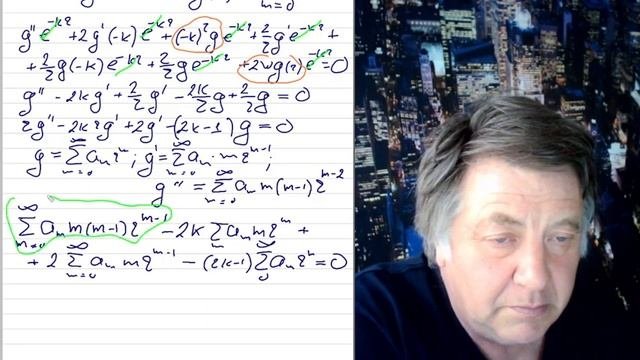 m=0
g'' e^{-kr} + 2g'(-k) e^{-kr} + (-k)²g e^{-kr} + 2/r g' e^{-kr} +
+ 2/r g(-k) e^{-kr} + 2/r g e^{-kr} + 2W g(r) e^{-kr} = 0
g'' - 2kg' + 2/r g' - 2k/r g + 2/r g = 0
rg'' - 2krg' + 2g' - (2k-1) g = 0
g = ∑_{m=0}^∞ a_m r^m ; g' = ∑_{m=0}^∞ a_m · m r^{m-1} ;
g'' = ∑_{m=0}^∞ a_m m(m-1) r^{m-2}
∑_{m=0}^∞ a_m m(m-1) r^{m-1} - 2k ∑_m a_m m r^m +
+ 2 ∑_{m=0}^∞ a_m m r^{m-1} - (2k-1) ∑_0^∞ a_m r^m = 0